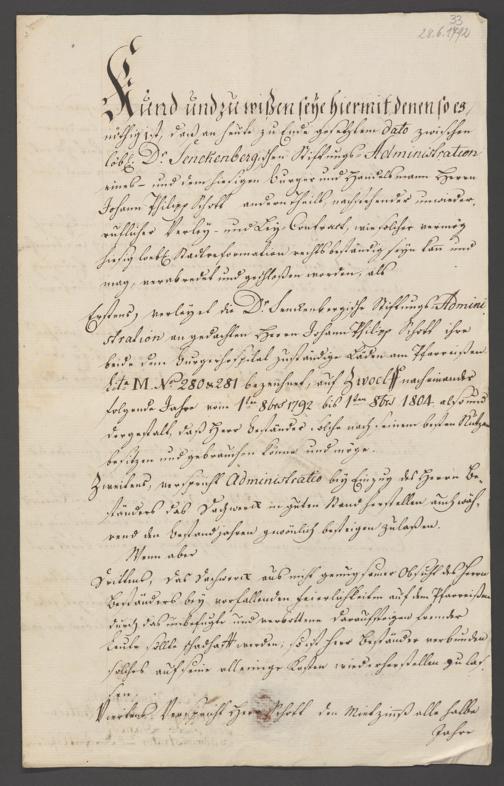 33
28.6.1792
Kund und zu wißen seye hiermit denen so es
nöthig ist, daß an heute zu Ende gesetztem dato zwischen
löbl. Dr. Senckenbergischen Stiftungs-Administration
eines- und dem hiesigen Burger und Handelsmann Herrn
Johann Philipp Schott andern Theils, nachstehender unwieder-
ruflicher Verley- und Ley-Contract, wie solcher vermög
hiesig löbl. Stadtreformation rechtsbeständig seyn kan und
mag, verabredet und geschloßen worden, als
Erstens, verleyhet die Dr. Senckenbergische Stiftungs Admini-
stration an gedachten Herrn Johann Philipp Schott ihre
beide dem Burgerhospital zuständige Läden am Pfarreisen
Litr. M. No. 280 & 281 bezeichnet, auf Zwoelf nacheinander
folgende Jahre vom 1ten 8bris 1792 bis 1ten 8bris 1804 also und
dergestalt, daß Herr Beständer solche nach seinem besten Nutzen
besitzen und gebrauchen könne und möge.
Zweitens, verspricht Administratio bey Einzug des Herrn Be-
ständers das Dachwerck in guten Stand herstellen, auch wäh-
rend den Bestandjahren gewönlich besteigen zu laßen.
Wenn aber
Drittens, das Dachwerck aus nicht genugsamer Obsicht des Herrn
Beständers bey vorfallenden Feierlichkeiten auf dem Pfarreisen
durch das unbefugte und verbottene Daraufsteigen fremder
Leute sollte schadhaft werden, so ist Herr Beständer verbunden
solches auf seine alleinige Kosten wiederherstellen zu las-
sen.
Viertens Verspricht Herr Schott den Mietzinnß alle halbe
Jahre